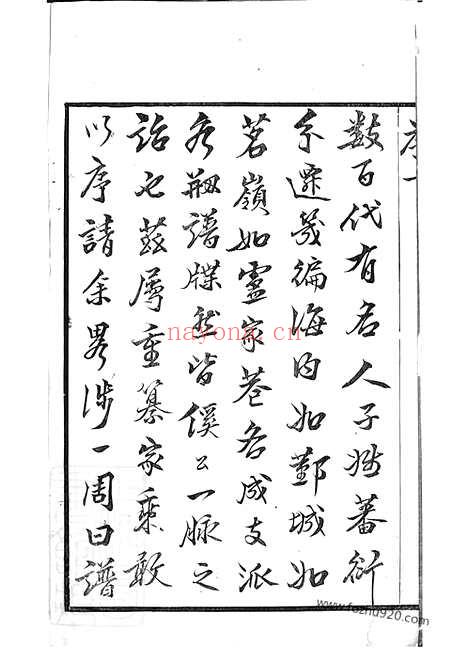 序一
數百代有名人子姓蕃衍
分遷幾徧海內如鄞城如
茗嶺如靈家巷各成支派
各刱譜牒然皆僕公一脈之
詒也茲屆重纂家乘敢
以序請余畧涉一周曰譜
nayona.cn
www.fozhu920.com